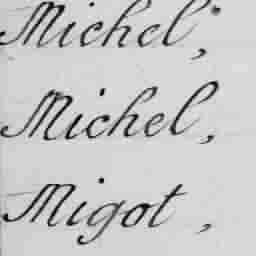 Michel,
Michel,
Migot,